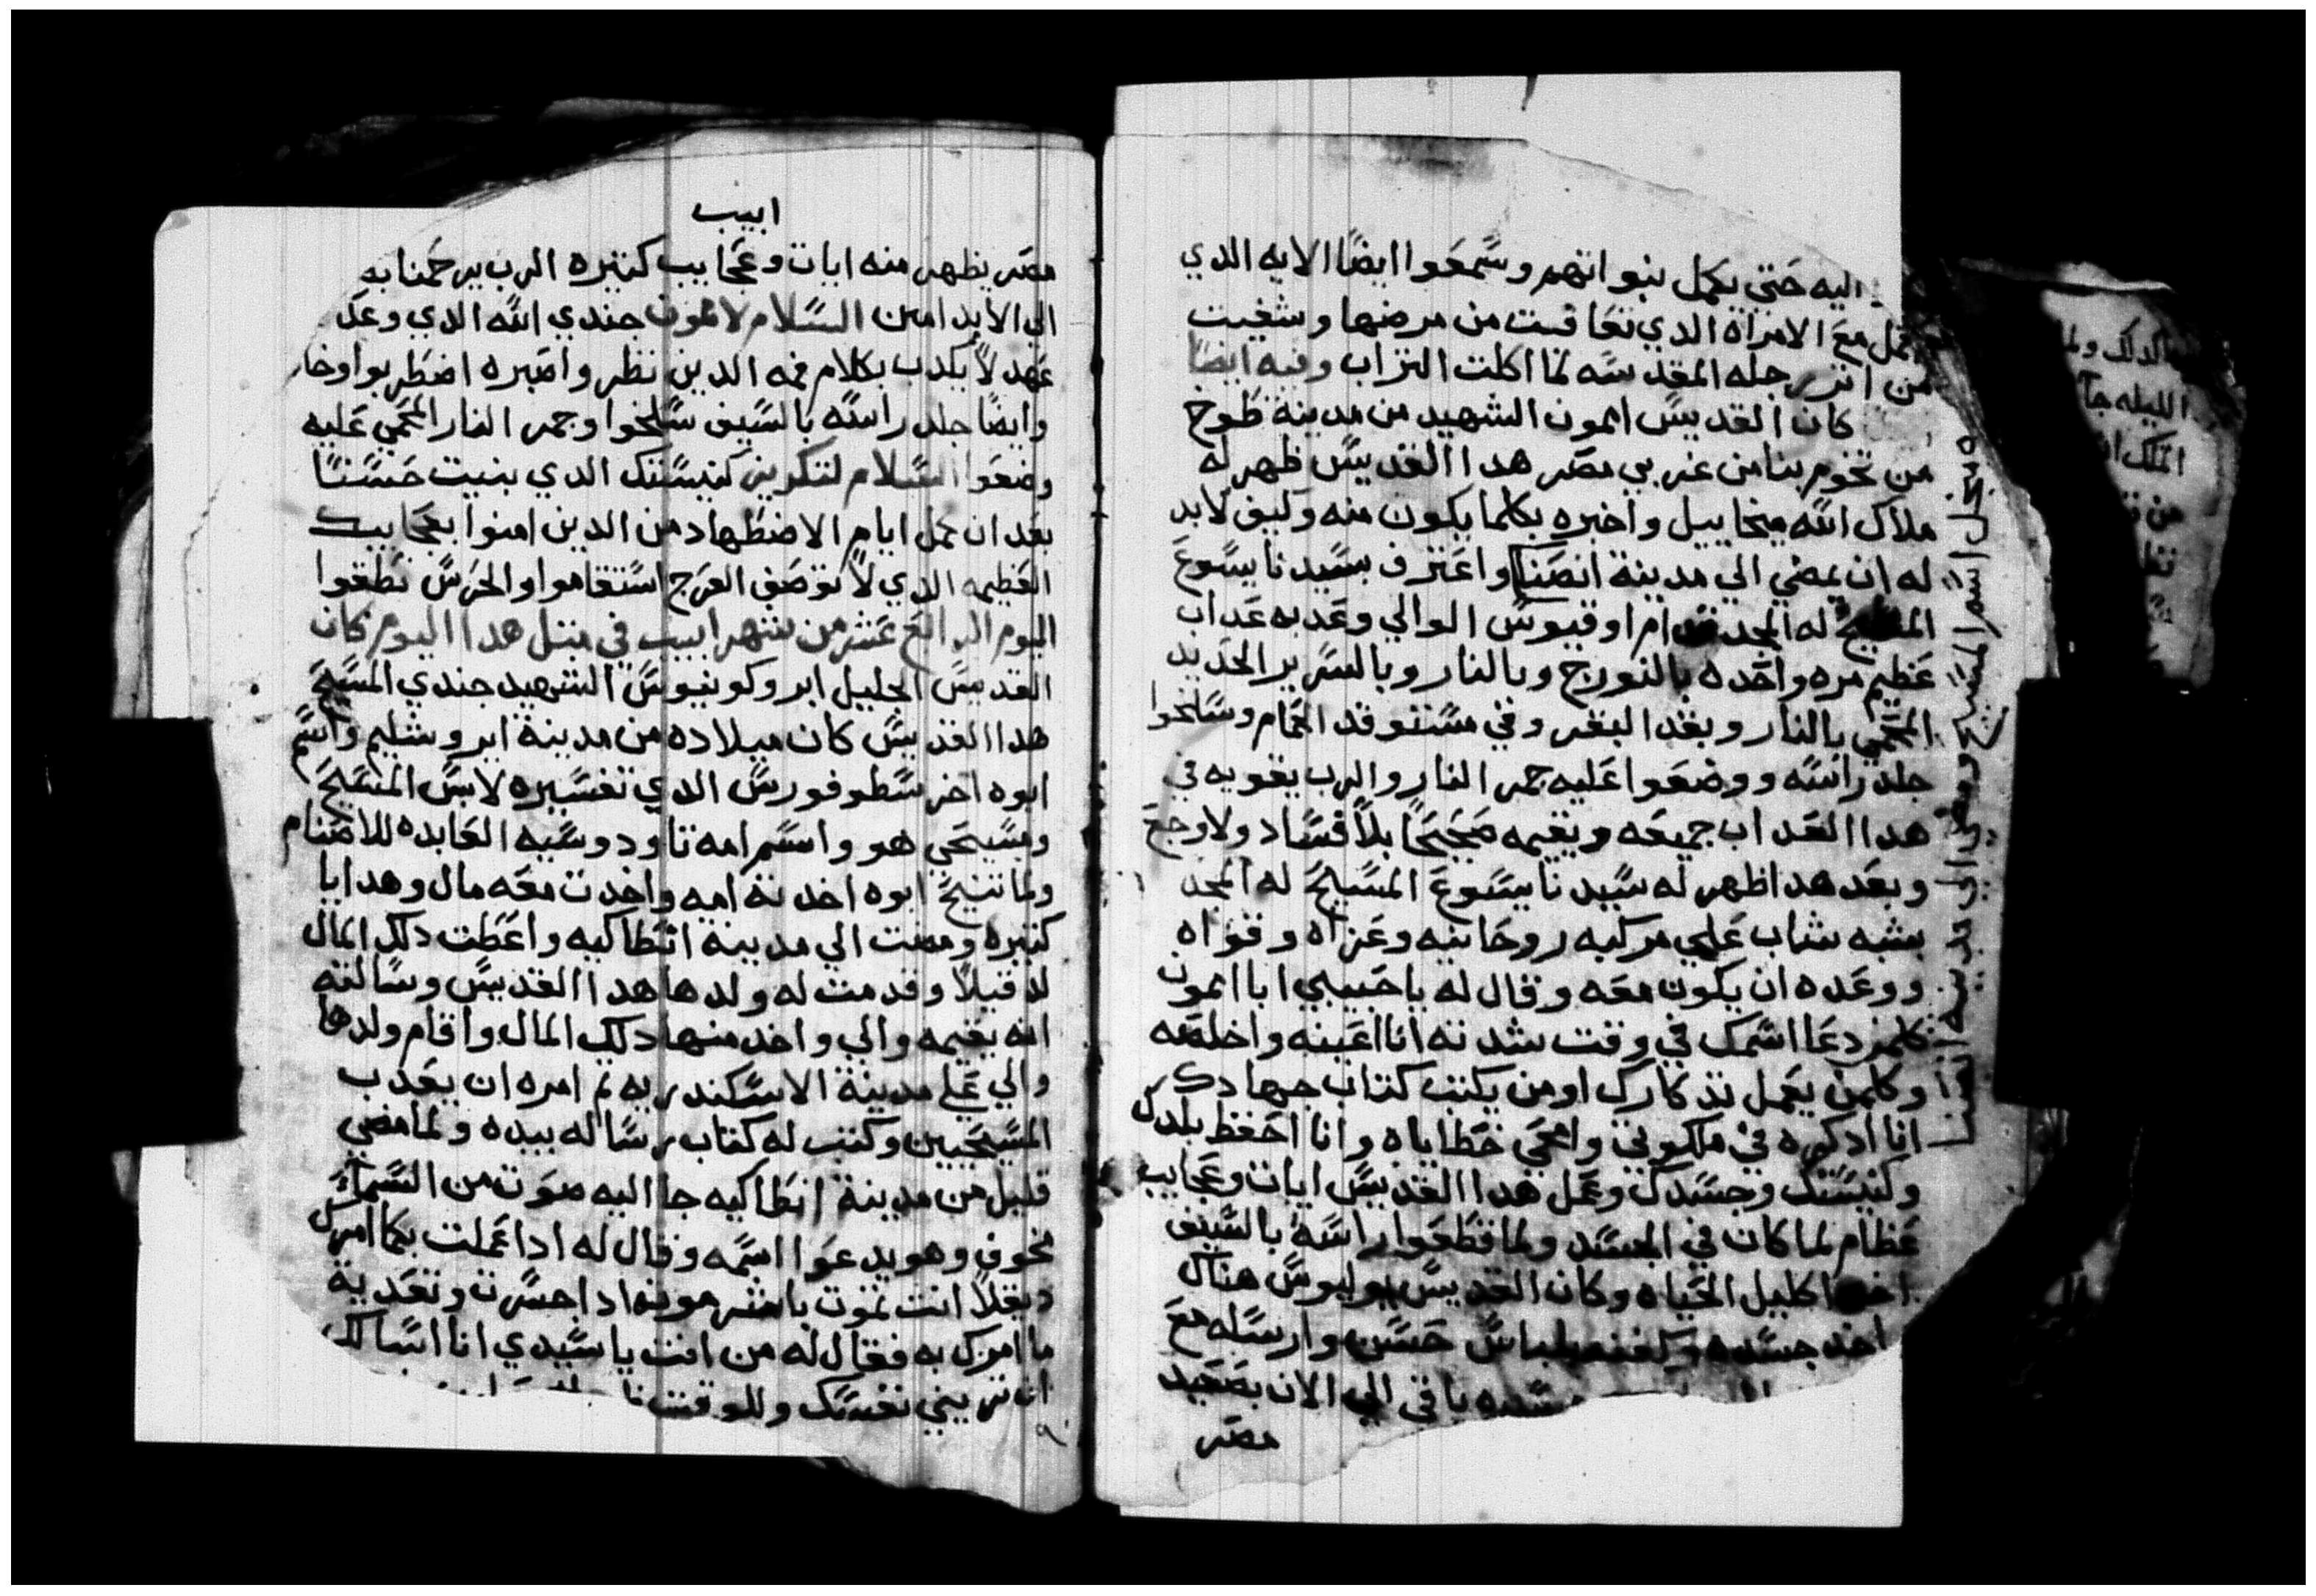 اليه حتي يكمل بنواتهم وسمعوا ايضا الايه الدي
عمل مع الامراه الدي تعافت من مرضها وشفيت
من اتر رجله المقدسه لما اكلت التراب وفيه ايضا
كان القديس امون الشهيد من مدينة طوخ
من تخوم بنا من غربي مصر هدا القديس ظهر له
ملاك الله ميخاييل واخبره بكلما يكون منه وكيف لابد
له ان يمضي الي مدينة انصنا واعترف بسيدنا يسوع
المسيح له المجد قدام اوقيوس الوالي وعدبه عداب
عظيم مره واحده بالنورج وبالنار وبالسرير الحديد
المحمي بالنار وبعد البقر وفي مستوقد الحمام وسلخوا
جلد راسه ووضعوا عليه جمر النار والرب يقويه في
هدا العداب جميعه ويقيمه صحيحا بلا فساد ولا وجع
وبعد هدا ظهر له سيدنا يسوع المسيح له المجد
بشبه شاب علي مركبه روحانيه وعزاه وقواه
ووعده ان يكون معه وقال له يا حبيبي ابا امون
كلمن دعا اسمك في وقت شدته انا اعينه واخلصه
وكلمن يعمل تدكارك او من يكتب كتاب جهادك
انا ادكره في ملكوتي وامحي خطاياه وانا احفظ بلدك
وكنيستك وجسدك وعمل هدا القديس ايات وعجايب
عظام لما كان في الجسد ولما قطعوا راسه بالسيف
اخد اكليل الحياه وكان القديس يوليوس هناك
اخد جسده وكفنه بلباس حسن وارسله مع
جسده باقي الي الان بصعيد
مصر
يحل اسم المسيح ومضي الي مدينه انصنا
ابيب
مصر يظهر منه ايات وعجايب كتيره الرب يرحمنا به
الي الابد امين السلام لامون جندي الله الدي وعد
عهد لا يكدب بكلام فمه الدين نظروا صبره اضطربوا وخار
وايضا جلد راسه بالسيف سلخوا وجمر النار المحمي عليه
وضعوا السلام لتكريز كنيستك الدي بنيت حسنا
بعد ان كمل ايام الاضطهاد من الدين امنوا بعجايبك
العظيمه الدي لا توصف العرج استقاموا والخرس نطقوا
اليوم الرابع عشر من شهر ابيب في متل هدا اليوم كان
القديس الجليل ابروكونيوس الشهيد جندي المسيح
هدا القديس كان ميلاده من مدينة ايروشليم واسم
ابوه اخرسطوفورس الدي تفسيره لابس المسيح
ومسيحي هو واسم امه تاودوسيه العابده للاصنام
ولما تنيح ابوه اخدته امه واخدت معه مال وهدايا
كتيره ومضت الي مدينة انطاكيه واعطت دلك المال
لدقيلا وقدمت له ولدها هدا القديس وسالته
انه يقيمه والي واخد منها دلك المال واقام ولدها
والي علي مدينة الاسكندريه تم امره ان يعدب
المسيحيين وكتب له كتاب رساله بيده ولما مضي
قليل من مدينة انطاكيه جا اليه صوت من السماء
مخوف وهو يدعوا اسمه وقال له ادا عملت بكما امرك
ديقلا انت تموت بامر هو فاد اجسرت وتعديه
ما امرك به فقال له من انت يا سيدي انا اسالك
ان تريني نفسك وللوقت
الدلك ولما
الليله جا
الملك
من